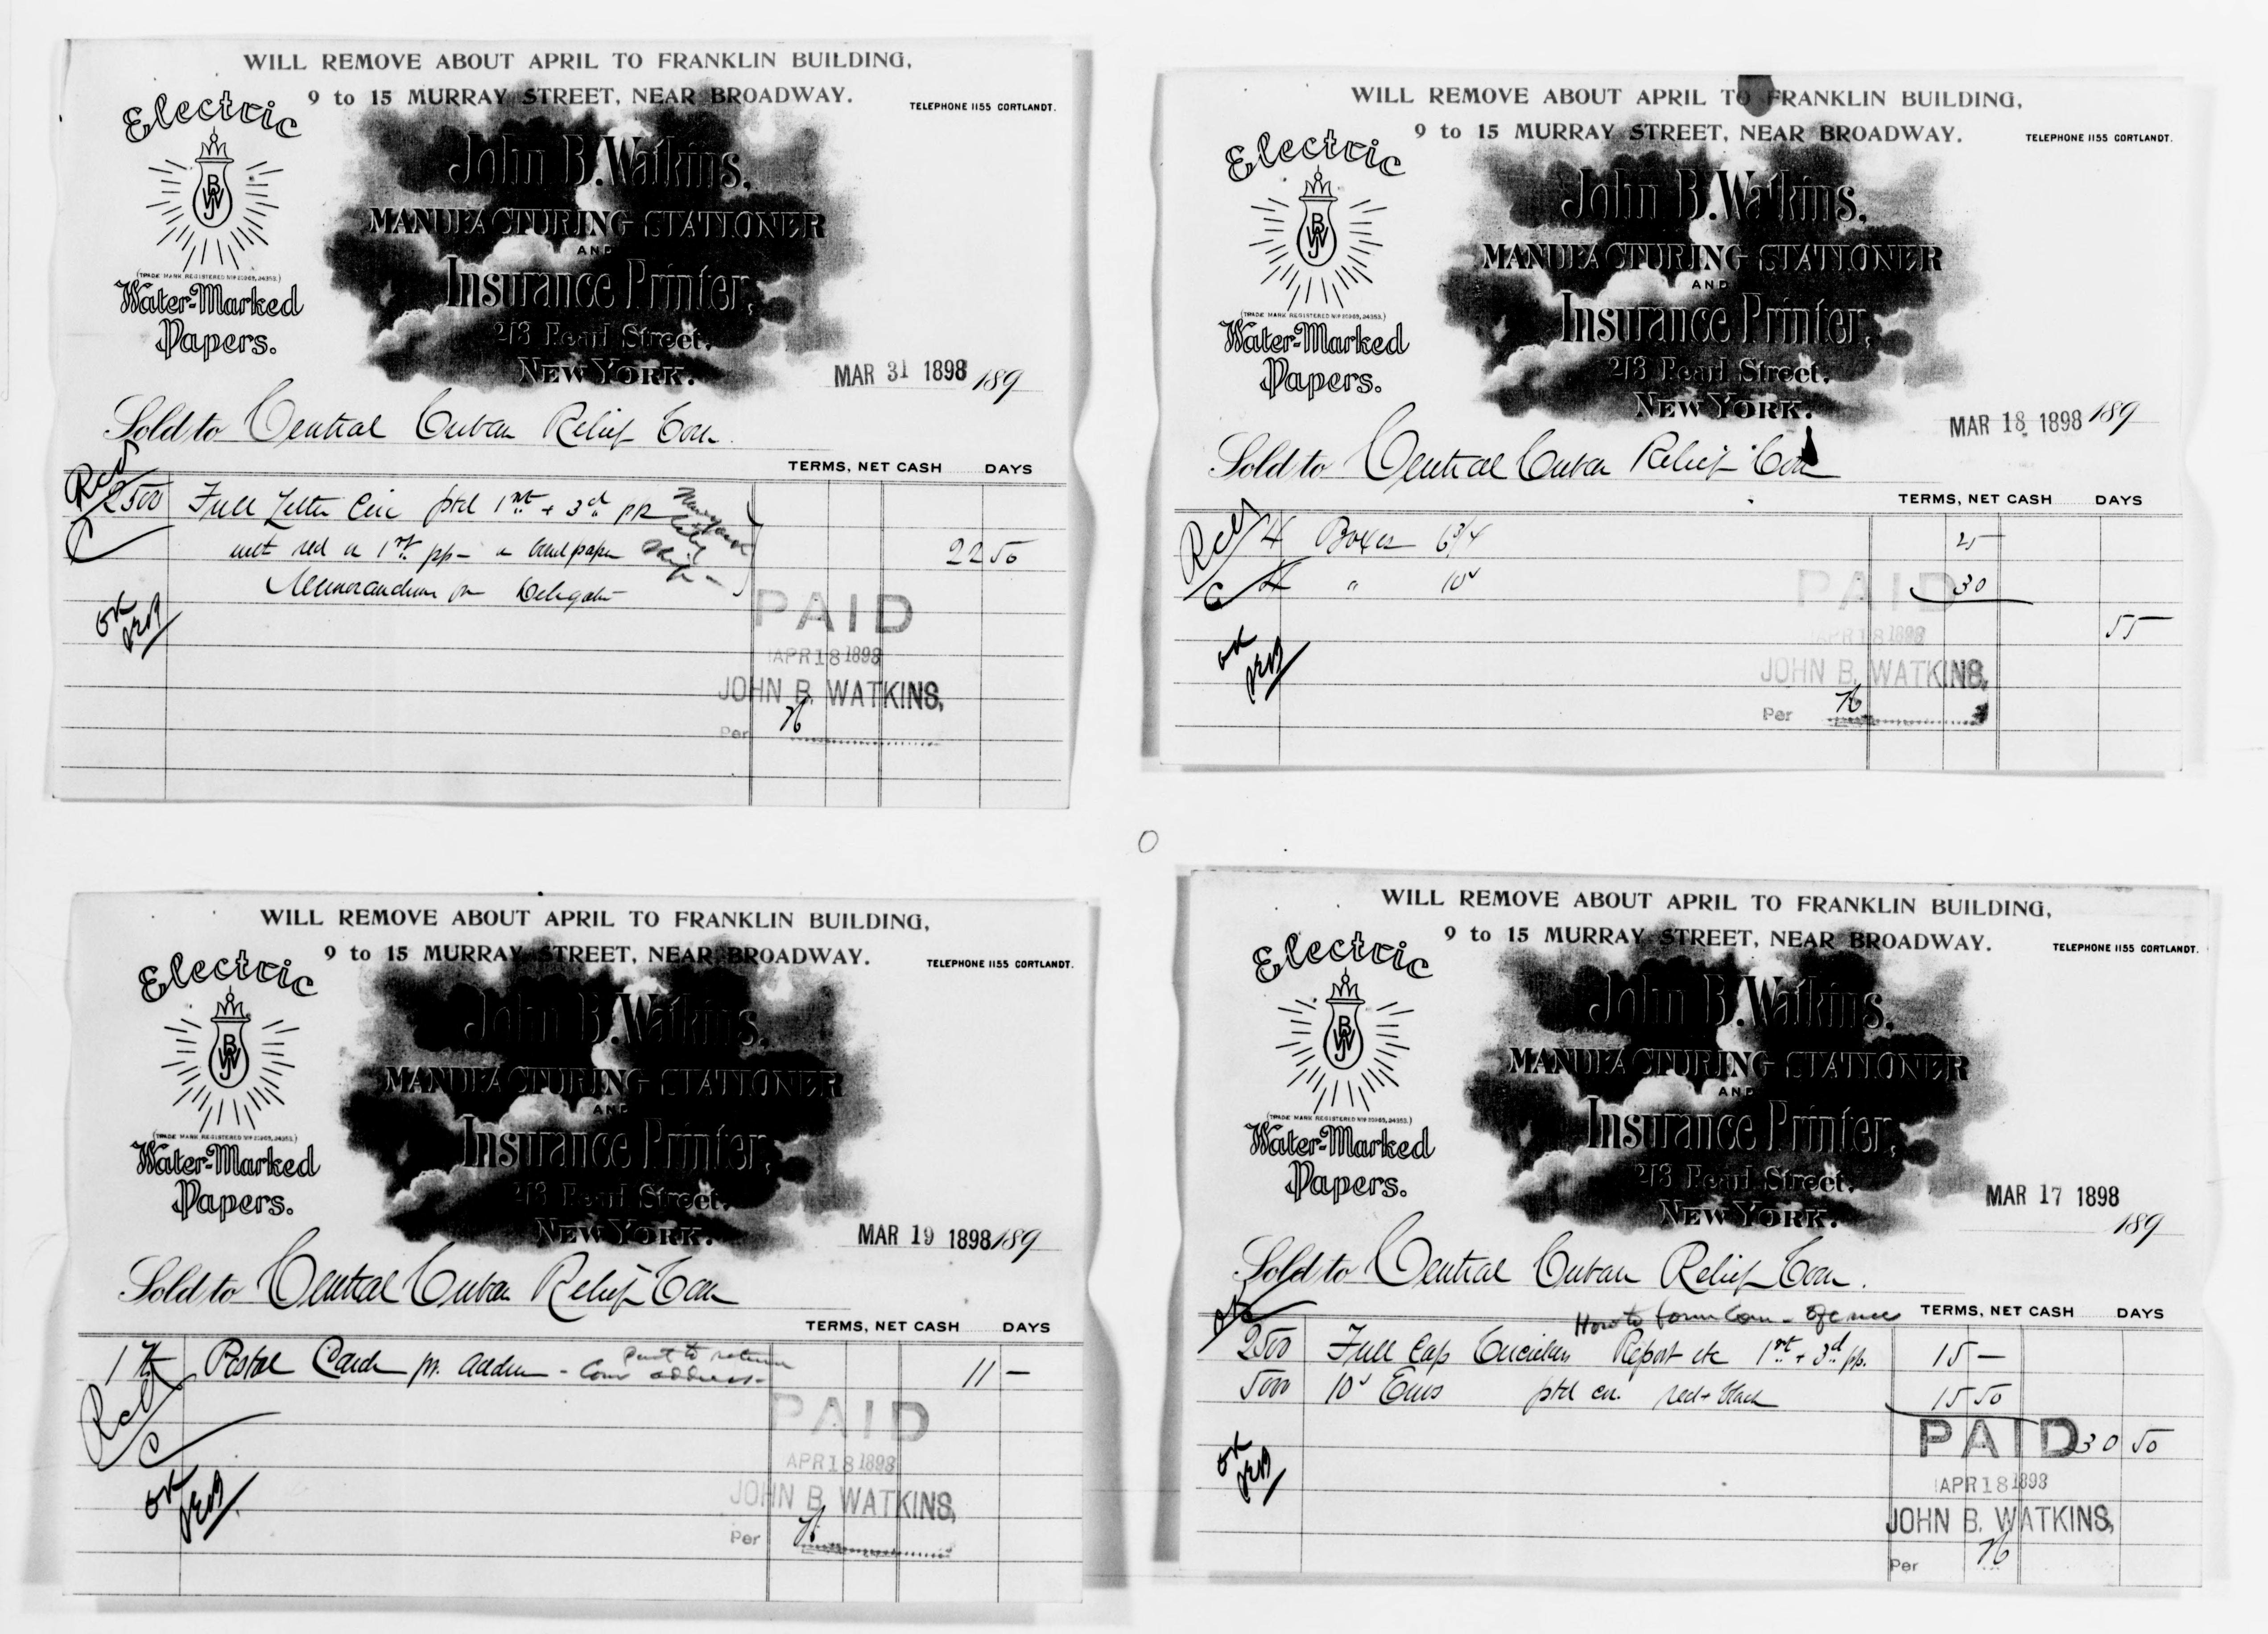 WILL REMOVE ABOUT APRIL TO FRANKLIN BUILDING,
9 to 15 MURRAY STREET, NEAR BROADWAY.
TELEPHONE 1155 CORTLANDT.
Electric
JBW
Water-Marked
Papers.
John B. Watkins,
MANUFACTURING STATIONER
AND
Insurance Printer,
213 Pearl Street,
NEW YORK.
MAR 31 1898 189
Sold to Central Cuban Relief Com.
TERMS, NET CASH DAYS
2500 Full Letter Circ ptd 1st + 3rd pp
red 1st pp - paper 22 50
Memorandum Delegate
OK
PAID
APR 18 1898
JOHN B. WATKINS,
Per
WILL REMOVE ABOUT APRIL TO FRANKLIN BUILDING,
9 to 15 MURRAY STREET, NEAR BROADWAY.
TELEPHONE 1155 CORTLANDT.
Electric
JBW
Water-Marked
Papers.
John B. Watkins,
MANUFACTURING STATIONER
AND
Insurance Printer,
213 Pearl Street,
NEW YORK.
MAR 18 1898 189
Sold to Central Cuban Relief Com
TERMS, NET CASH DAYS
4 Boxes 6 3/4 25
4 " 10 30
55
OK
PAID
APR 18 1898
JOHN B. WATKINS,
Per
WILL REMOVE ABOUT APRIL TO FRANKLIN BUILDING,
9 to 15 MURRAY STREET, NEAR BROADWAY.
TELEPHONE 1155 CORTLANDT.
Electric
JBW
Water-Marked
Papers.
John B. Watkins,
MANUFACTURING STATIONER
AND
Insurance Printer,
213 Pearl Street,
NEW YORK.
MAR 19 1898 189
Sold to Central Cuban Relief Com
TERMS, NET CASH DAYS
1 M Postal Cards pr. address - 11 -
OK
PAID
APR 18 1898
JOHN B. WATKINS,
Per
WILL REMOVE ABOUT APRIL TO FRANKLIN BUILDING,
9 to 15 MURRAY STREET, NEAR BROADWAY.
TELEPHONE 1155 CORTLANDT.
Electric
JBW
Water-Marked
Papers.
John B. Watkins,
MANUFACTURING STATIONER
AND
Insurance Printer,
213 Pearl Street,
NEW YORK.
MAR 17 1898
189
Sold to Central Cuban Relief Com.
TERMS, NET CASH DAYS
How to form Com -
2500 Full Cap Circulars Report etc 1st + 3rd pp. 15 -
5000 10 Envs ptd red + black 15 50
30 50
OK
PAID
APR 18 1898
JOHN B. WATKINS,
Per